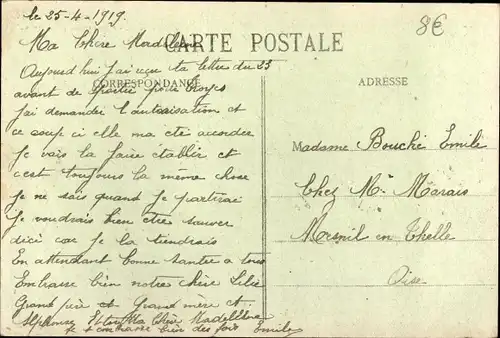 le 25-4-1919.
8€
Ma Chère Madeleine
CARTE POSTALE
Aujourd hui j'ai reçu ta lettre du 23
CORRESPONDANCE
avant de pour Troyes
j'ai demander l'autorisation et
ce coup ci elle ma etè accorder
Je vais la faire établir et
c'est toujours la même chose
je ne sais quand je partirai
Je voudrais bien etre sauver
dici car je la tiendrais
En attendant bonne santer a tous
Embrasse bien notre chère Lilie
Grand père et Grand mère et
Alphonse Et toi Ma Chère Madeleine
je t'embrasse bien des fois Emile
ADRESSE
Madame Bouché Emile
Chez Mr Marais
Mesnil en Thelle
Oise